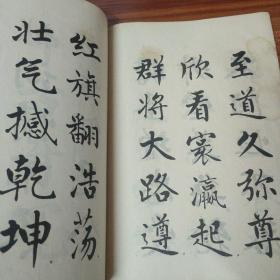 至道久弥尊
欣看寰瀛起
群将大路遵
红旗翻浩荡
壮气撼乾坤